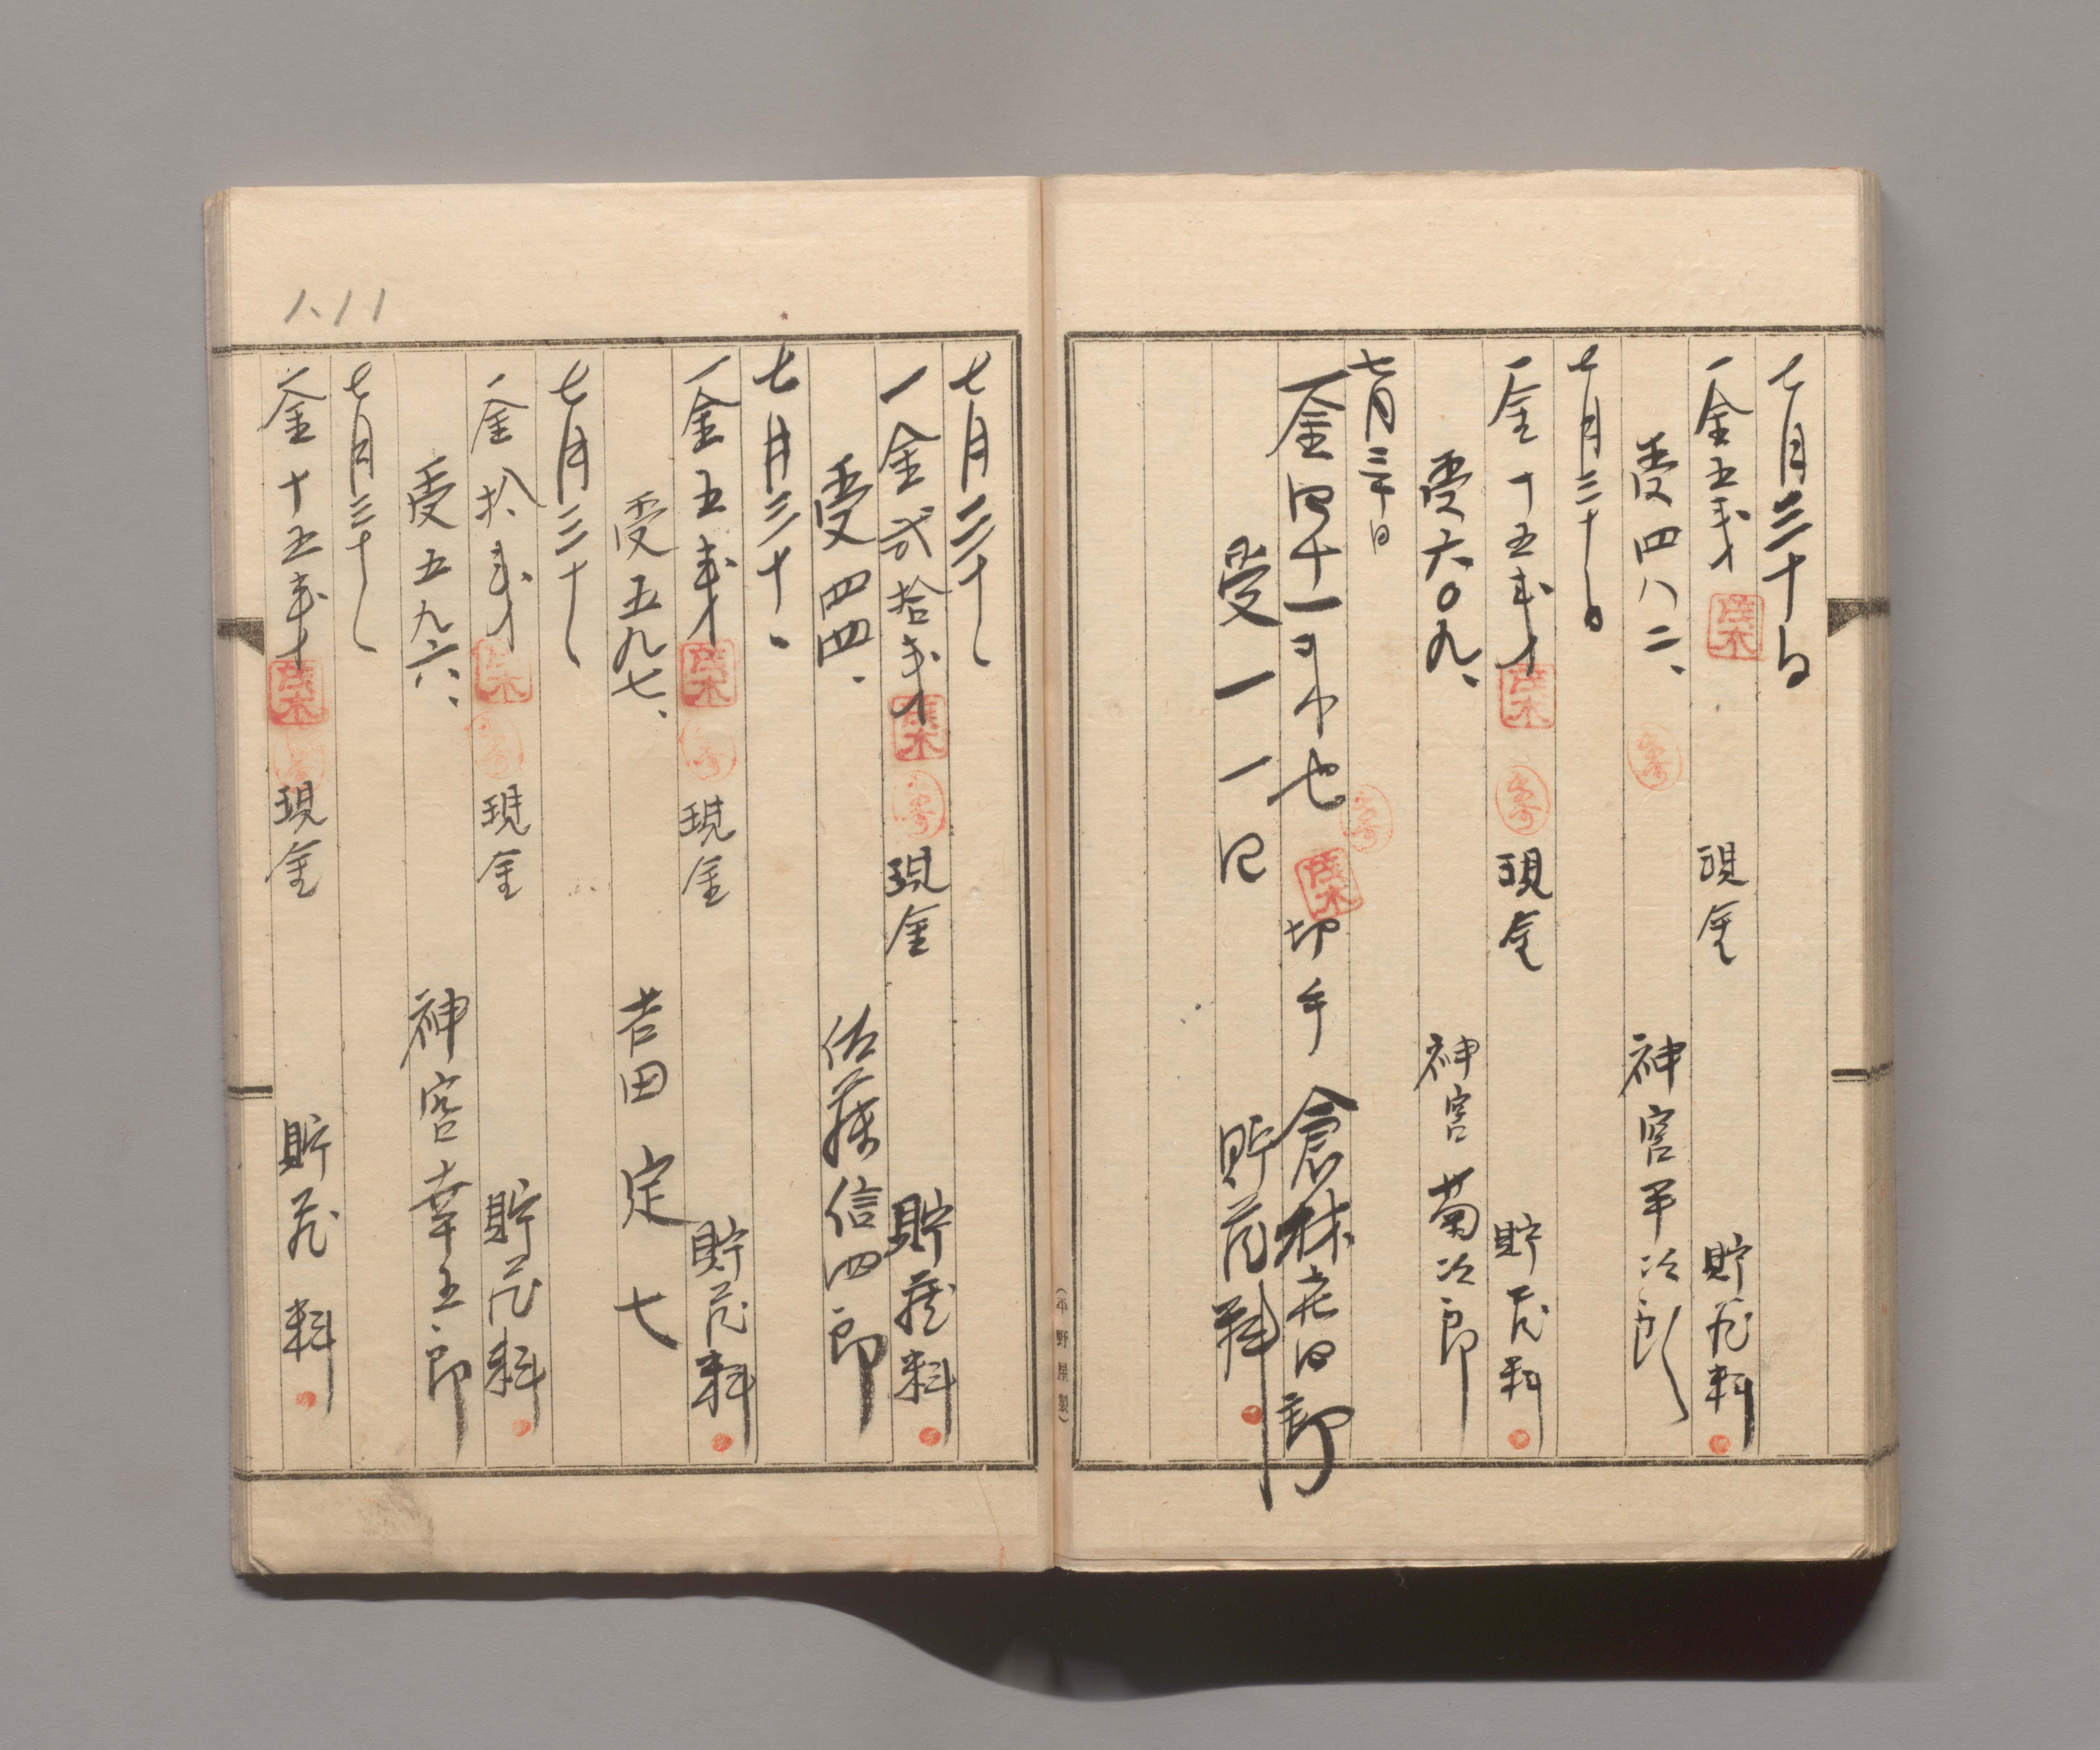 七月三十日
一金五銭 現金 貯蔵料
受四八二、 神宮平次郎
七月三十日
一金十五銭 現金 貯蔵料
受六〇九、 神宮菊次郎
七月三十日
一金四十一 也 切手 倉林 郎
受一一四 貯蔵料
(平野屋製)
七月三十、
一金弐拾銭 現金 貯蔵料
受四四、 佐藤信四郎
七月三十、
一金五銭 現金 貯蔵料
受五九七、 吉田定七
七月三十、
一金拾銭 現金 貯蔵料
受五九六、 神宮幸五郎
七月三十、
一金十五銭 現金 貯蔵料